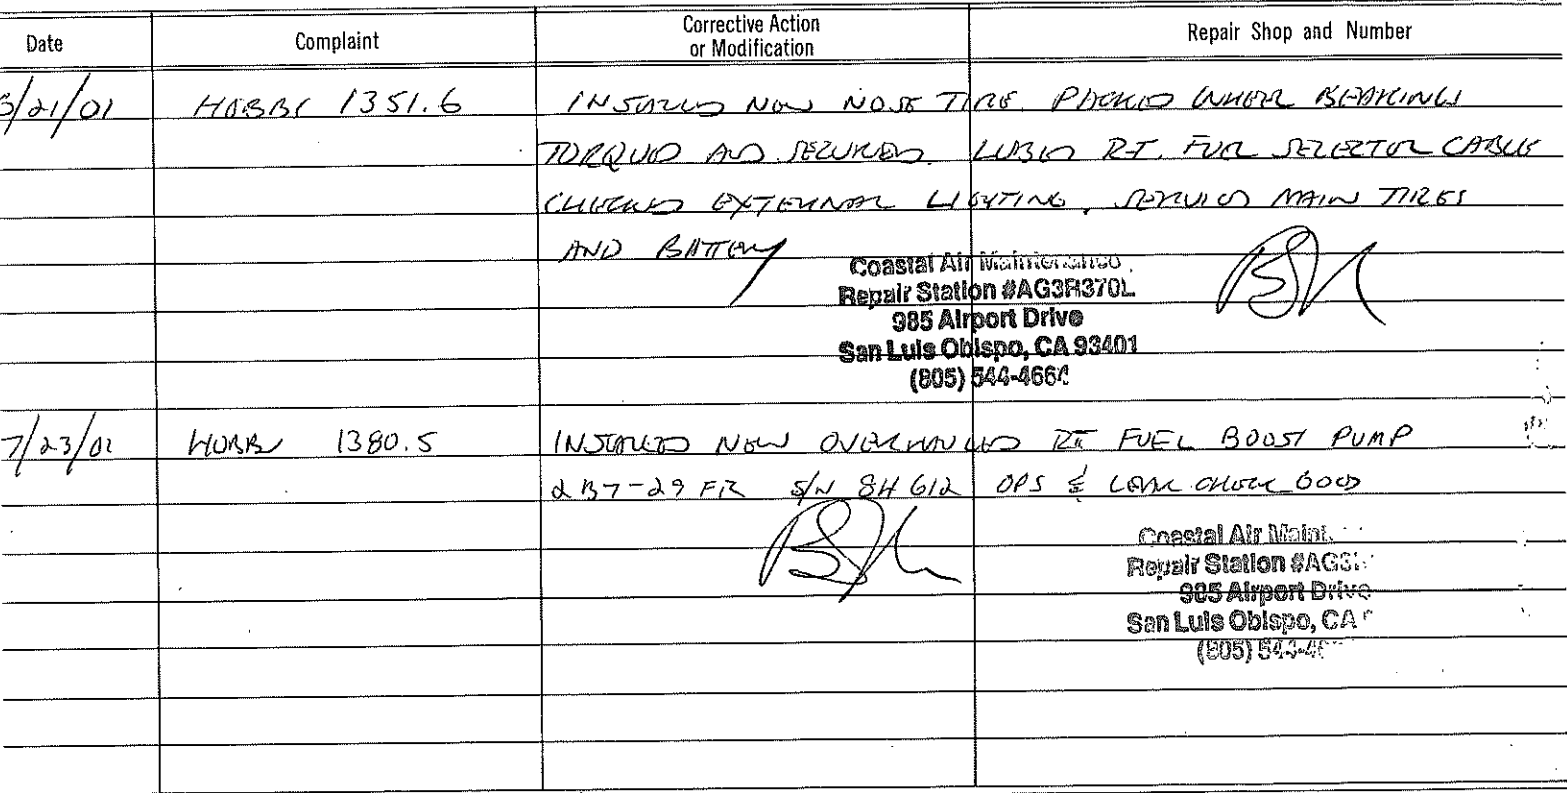 Date Complaint Corrective Action or Modification Repair Shop and Number
3/21/01 HOBBS 1351.6 INSTALLED NEW NOSE TIRE. PACKED WHEEL BEARINGS
TORQUED AND SECURED. LUBED RT. FUEL SELECTOR CABLE
CHECKED EXTERNAL LIGHTING, SERVICED MAIN TIRES
AND BATTERY
Coastal Air Maintenance
Repair Station #AG3R370L
985 Airport Drive
San Luis Obispo, CA 93401
(805) 544-4664
7/23/01 HOBBS 1380.5 INSTALLED NEW OVERHAULED RT FUEL BOOST PUMP
2B7-29 FR S/N 8H612 OPS & LEAK CHECK GOOD
Coastal Air Maint.
Repair Station #AG3
985 Airport Drive
San Luis Obispo, CA
(805) 544-4